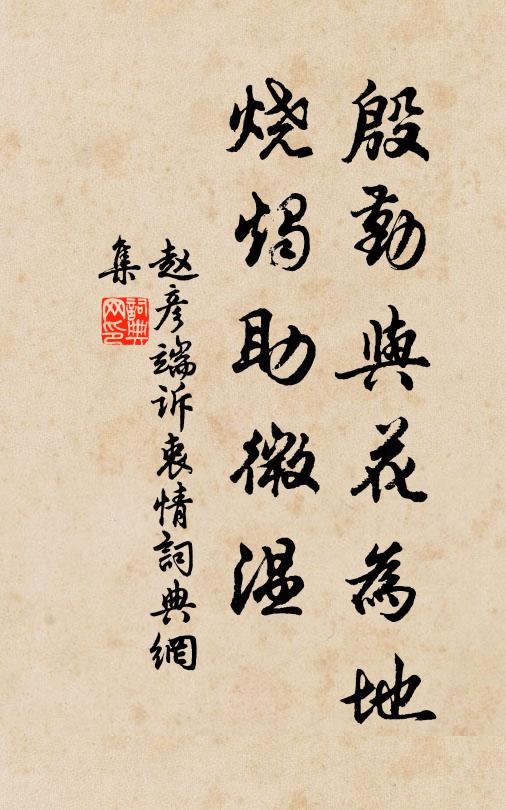 殷勤與花為地
烧烛助微温
赵彦端诉衷情詞典網
集
詞典網印